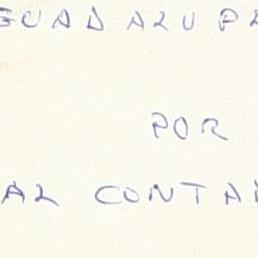 GUADALUP
POR
AL CONTA